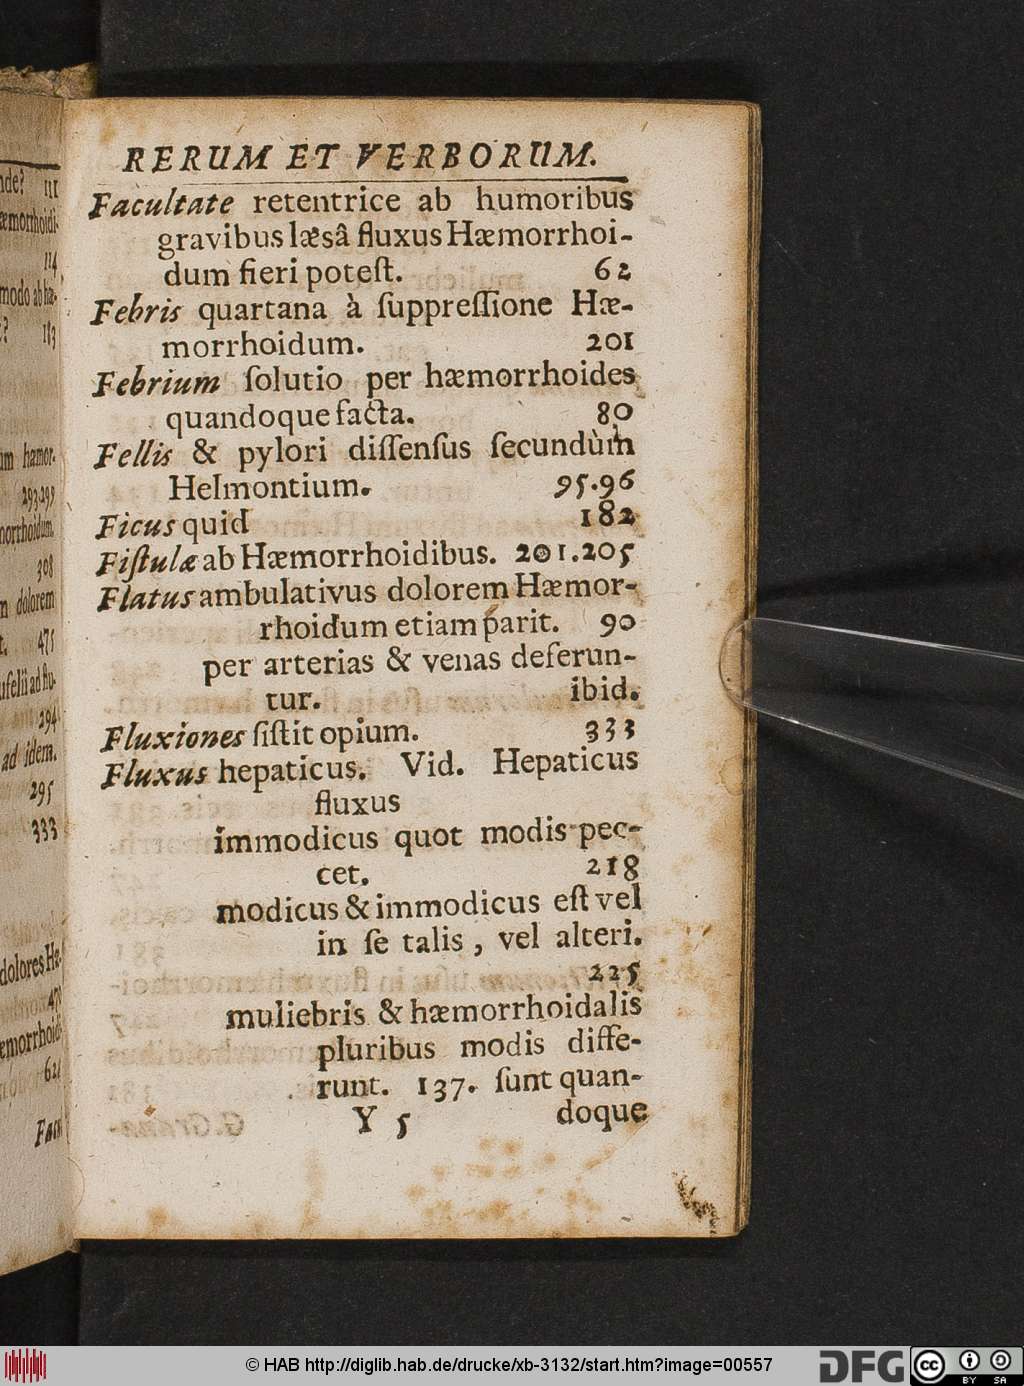 nde? 111
æmorrhoidi-
114
modo ab hæ-
? 113
um hæmor-
293.299
morrhoidum.
308
m dolorem
t. 475
294
ad idem.
295
333
dolores Hæ-
621
Facu
RERUM ET VERBORUM.
Facultate retentrice ab humoribus
gravibus læsâ fluxus Hæmorrhoi-
dum fieri poteſt. 62
Febris quartana à ſuppreſſione Hæ-
morrhoidum. 201
Febrium ſolutio per hæmorrhoides
quandoque facta. 80
Fellis & pylori diſſenſus ſecundùm
Helmontium. 95.96
Ficus quid 182
Fiſtulæ ab Hæmorrhoidibus. 201.205
Flatus ambulativus dolorem Hæmor-
rhoidum etiam parit. 90
per arterias & venas deferun-
tur. ibid.
Fluxiones ſiſtit opium. 333
Fluxus hepaticus. Vid. Hepaticus
fluxus
immodicus quot modis pec-
cet. 218
modicus & immodicus eſt vel
in ſe talis, vel alteri.
225
muliebris & hæmorrhoidalis
pluribus modis diffe-
runt. 137. ſunt quan-
Y 5 doque
© HAB http://diglib.hab.de/drucke/xb-3132/start.htm?image=00557
DFG
cc BY SA